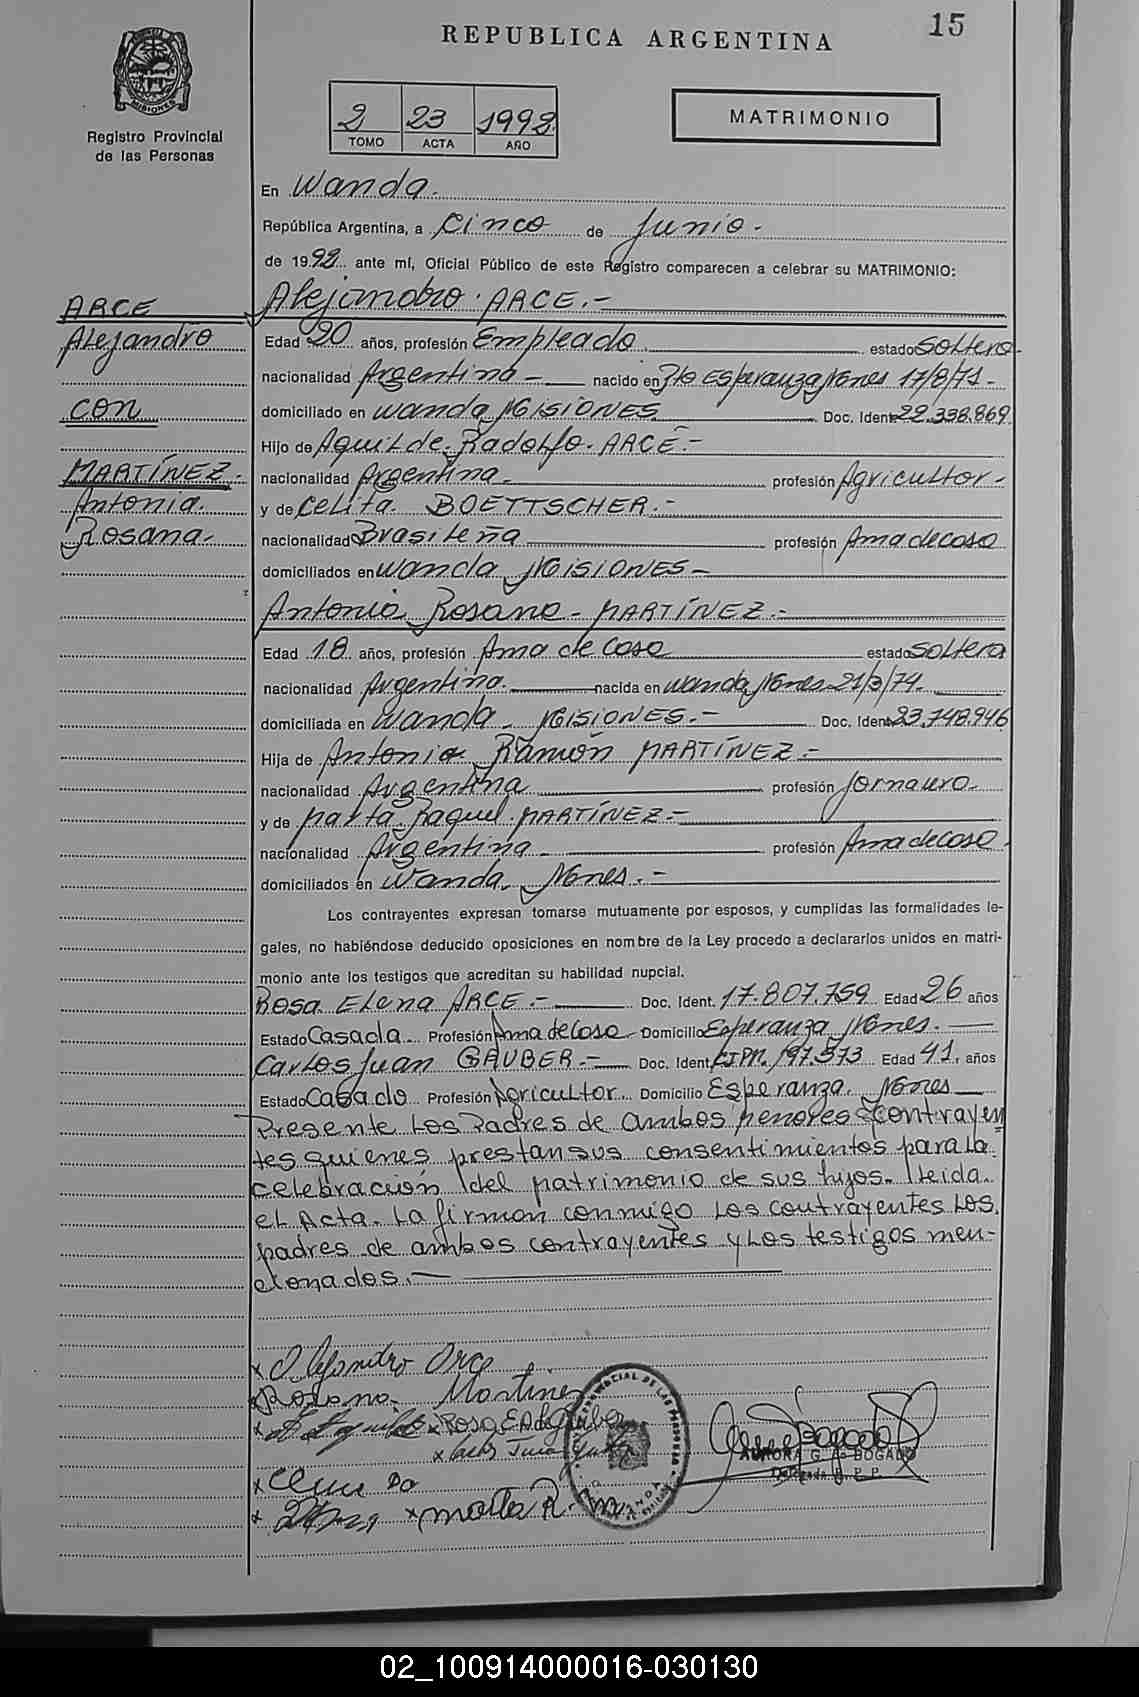 15
REPUBLICA ARGENTINA
MISIONES
Registro Provincial
de las Personas
2 23 1992
TOMO ACTA AÑO
MATRIMONIO
En Wanda.
República Argentina, a cinco de Junio.-
de 1992 ante mí, Oficial Público de este Registro comparecen a celebrar su MATRIMONIO:
ARCE
Alejandro
con
MARTÍNEZ.-
Antonia.
Rosana.-
Alejandro. ARCE.-
Edad 20 años, profesión Empleado estado Soltero
nacionalidad Argentino- nacido en Esperanza Mnes 17/8/71-
domiciliado en Wanda MISIONES. Doc. Ident. 22.338.869
Hijo de Aquilde. Rodolfo. ARCE-
nacionalidad Argentina. profesión Agricultor-
y de CELITA. BOETTSCHER.-
nacionalidad Brasileña profesión Ama de casa
domiciliados en Wanda MISIONES-
Antonia Rosana- MARTÍNEZ.-
Edad 18 años, profesión Ama de Casa estado Soltera
nacionalidad Argentina. nacida en Wanda, Mnes 21/3/74.
domiciliada en Wanda. MISIONES.- Doc. Ident. 23.748.946
Hija de Antonio Ramón MARTÍNEZ.-
nacionalidad Argentina profesión Jornalero.
y de Marta. Raquel. MARTÍNEZ-
nacionalidad Argentina profesión Ama de casa
domiciliados en Wanda, Mnes.-
Los contrayentes expresan tomarse mutuamente por esposos, y cumplidas las formalidades le-
gales, no habiéndose deducido oposiciones en nombre de la Ley procedo a declararlos unidos en matri-
monio ante los testigos que acreditan su habilidad nupcial.
Rosa Elena ARCE.- Doc. Ident. 17.807.759 Edad 26 años
Estado Casada. Profesión Ama de Casa Domicilio Esperanza Mnes.
Carlos Juan GAUBER- Doc. Ident. 197.573 Edad 41 años
Estado Casado Profesión Agricultor. Domicilio Esperanza. Mnes
Presente Los Padres de ambos menores contrayen
tes quienes prestan sus consentimientos para la
celebración del matrimonio de sus hijos. Leida.
el Acta. La firman conmigo Los contrayentes Los
padres de ambos contrayentes y Los testigos men-
cionados.-
x Alejandro Arce
x Rosana. Martinez
x Rosa E A de Gauber
x Marta R. M
AURORA G. BOGADO
Delegada R. P. P.
02_100914000016-030130